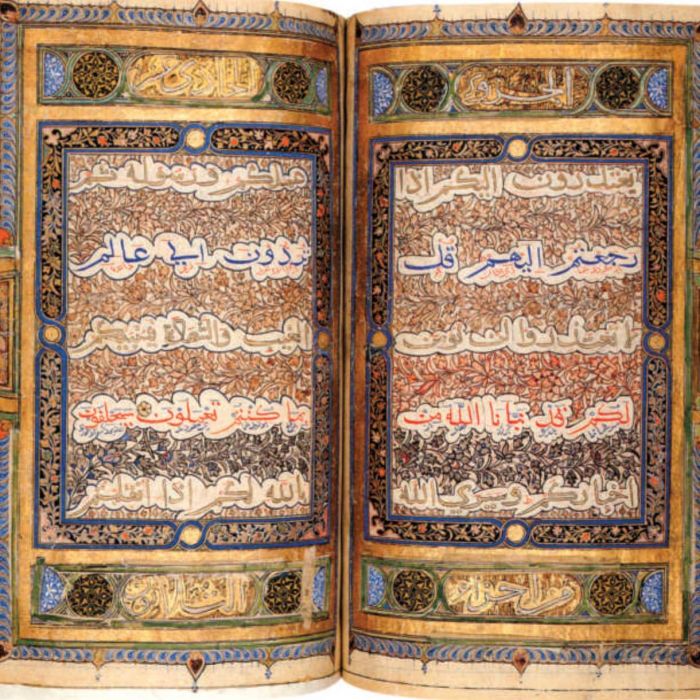 الجزو
يعتذرون اليكم اذا
رجعتم اليهم قل
لا تعتذروا لن نومن
لكم قد نبانا الله من
اخباركم وسيرى الله
من الاجزاء
الحادي عشر
عملكم ورسوله ثم
تردون الى عالم
الغيب والشهادة فينبئكم
بما كنتم تعملون سيحلفون
بالله لكم اذا انقلبتم